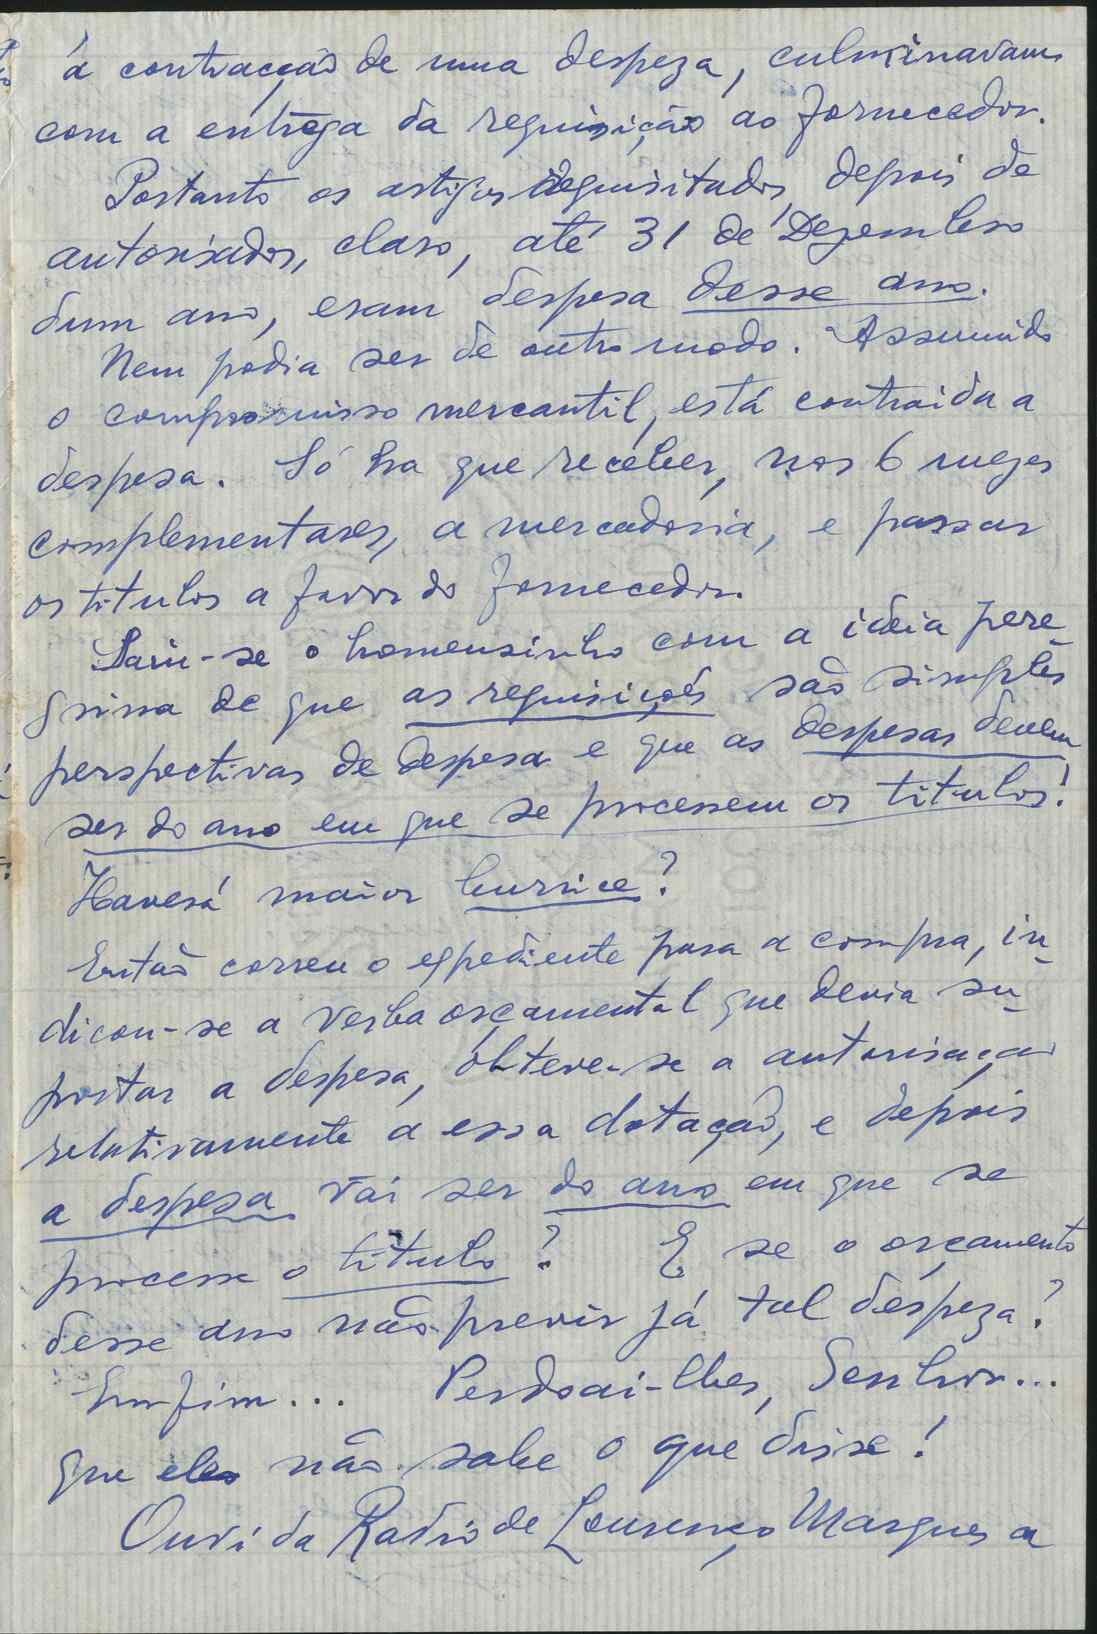 á contracção de uma despeza, culminavam
com a entrega da requisição ao fornecedor.
Portanto os artigos requisitados, depois de
autorisados, claro, até 31 de Dezembro
dum ano, eram despesa desse ano.
Nem podia ser de outro modo. Assumido
o compromisso mercantil, está contraida a
despesa. Só ha que receber, nos 6 mezes
complementares, a mercadoria, e passar
os titulos a favor do fornecedor.
Pariu-se o homensinho com a ideia pere-
grina de que as requisições são simples
perspectivas de despesa e que as despesas devem
ser do ano em que se processem os titulos!
Haverá maior burrice?
Então correu o expediente para a compra, in-
dicou-se a verba orçamental que devia su-
portar a despesa, obteve-se a autorisação
relativamente a essa dotação, e depois
a despesa vai ser do ano em que se
processe o titulo? E se o orçamento
desse ano não previr já tal despeza?
Emfim... Perdoai-lhes, Senhor...
que eles não sabe o que disse!
Ouvi da Radio de Lourenço Marques a